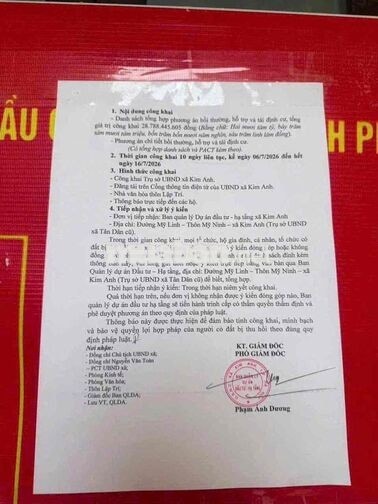 ẦU
H P
1. Nội dung công khai
- Danh sách tổng hợp phương án bồi thường, hỗ trợ và tái định cư, tổng
giá trị công khai 28.788.445.605 đồng (Bằng chữ: Hai mươi tám tỷ, bảy trăm
tám mươi tám triệu, bốn trăm bốn mươi năm nghìn, sáu trăm linh năm đồng).
- Phương án chi tiết bồi thường, hỗ trợ và tái định cư.
(Có tổng hợp danh sách và PACT kèm theo).
2. Thời gian công khai 10 ngày liên tục, kể ngày 06/7/2026 đến hết
ngày 16/7/2026
3. Hình thức công khai
- Công khai Trụ sở UBND xã Kim Anh.
- Đăng tải trên Cổng thông tin điện tử của UBND xã Kim Anh.
- Nhà văn hóa thôn Lập Trí.
- Thông báo trực tiếp đến các hộ.
4. Tiếp nhận và xử lý ý kiến
- Đơn vị tiếp nhận: Ban quản lý Dự án đầu tư - hạ tầng xã Kim Anh
- Địa chỉ: Đường Mỹ Linh – Thôn Mỹ Ninh – xã Kim Anh (Trụ sở UBND
xã Tân Dân cũ)
Trong thời gian công khai, mọi tổ chức, hộ gia đình, cá nhân, tổ chức có
đất bị ý kiến đóng góp hoặc không
đồng sách đính kèm
thông văn bản qua Ban
Quản lý dự án Đầu tư - Hạ tầng, địa chỉ: Đường Mỹ Linh – Thôn Mỹ Ninh – xã
Kim Anh (Trụ sở UBND xã Tân Dân cũ) để biết, tổng hợp.
Thời hạn tiếp nhận ý kiến: Trong thời hạn niêm yết công khai.
Quá thời hạn trên, nếu đơn vị không nhận được ý kiến đóng góp nào, Ban
quản lý dự án đầu tư hạ tầng sẽ tiến hành trình cấp có thẩm quyền thẩm định và
phê duyệt phương án theo quy định của pháp luật.
Thông báo này được thực hiện để đảm bảo tính công khai, minh bạch
và bảo vệ quyền lợi hợp pháp của người có đất bị thu hồi theo đúng quy
định pháp luật./.
Nơi nhận:
- Đồng chí Chủ tịch UBND xã;
- Đồng chí Nguyễn Văn Toàn
– PCT UBND xã;
- Phòng Kinh tế;
- Phòng Văn hóa;
- Thôn Lập Trí;
- Giám đốc Ban QLDA;
- Lưu VT, QLDA.
KT. GIÁM ĐỐC
PHÓ GIÁM ĐỐC
Phạm Ánh Dương